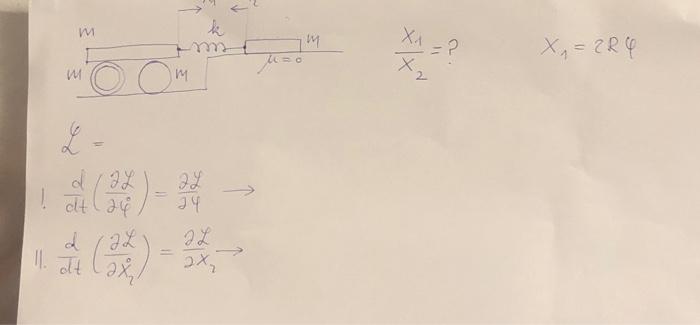 k
m
m
m
m
μ=0
X₁/X₂ = ?
X₁ = 2Rφ
ℒ =
I. d/dt (∂ℒ/∂φ̇) = ∂ℒ/∂φ →
II. d/dt (∂ℒ/∂ẋ₂) = ∂ℒ/∂x₂ →